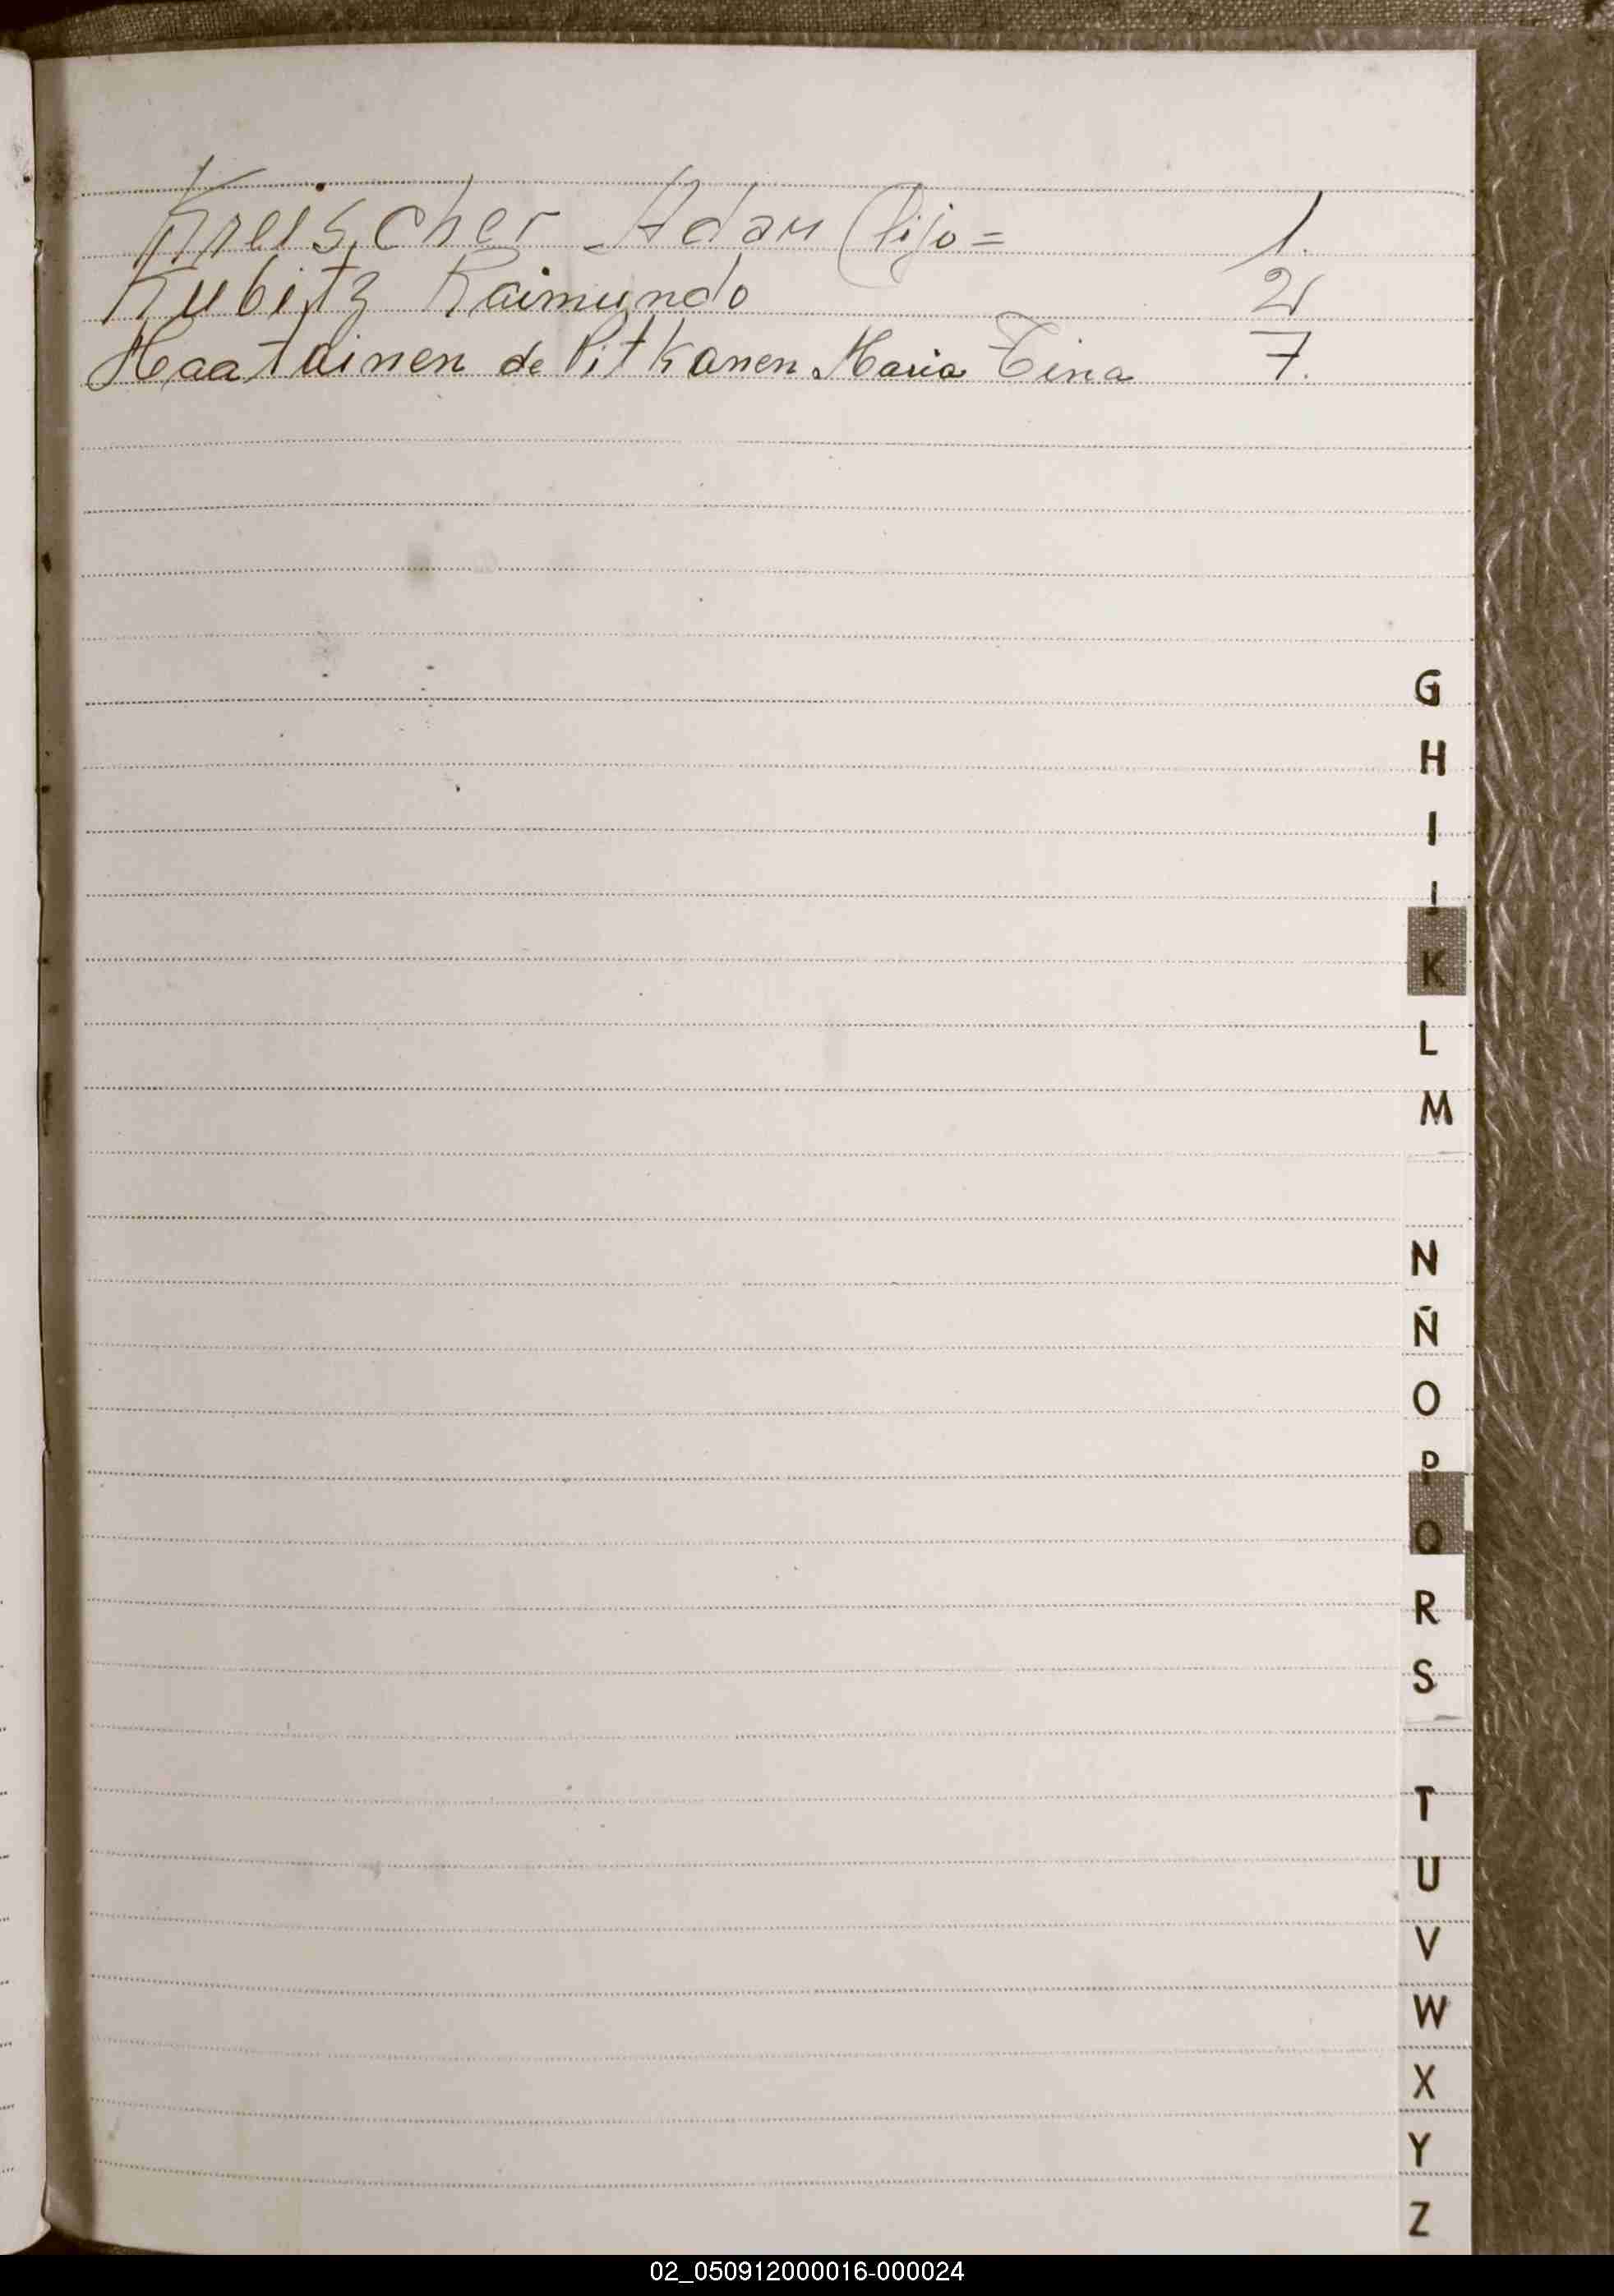 Kreischer Adam (hijo= 1.
Kubitz Raimundo 2
Haatainen de Pitkanen Maria Tina 7.
G
H
I
J
K
L
M
N
Ñ
O
P
Q
R
S
T
U
V
W
X
Y
Z
02_050912000016-000024